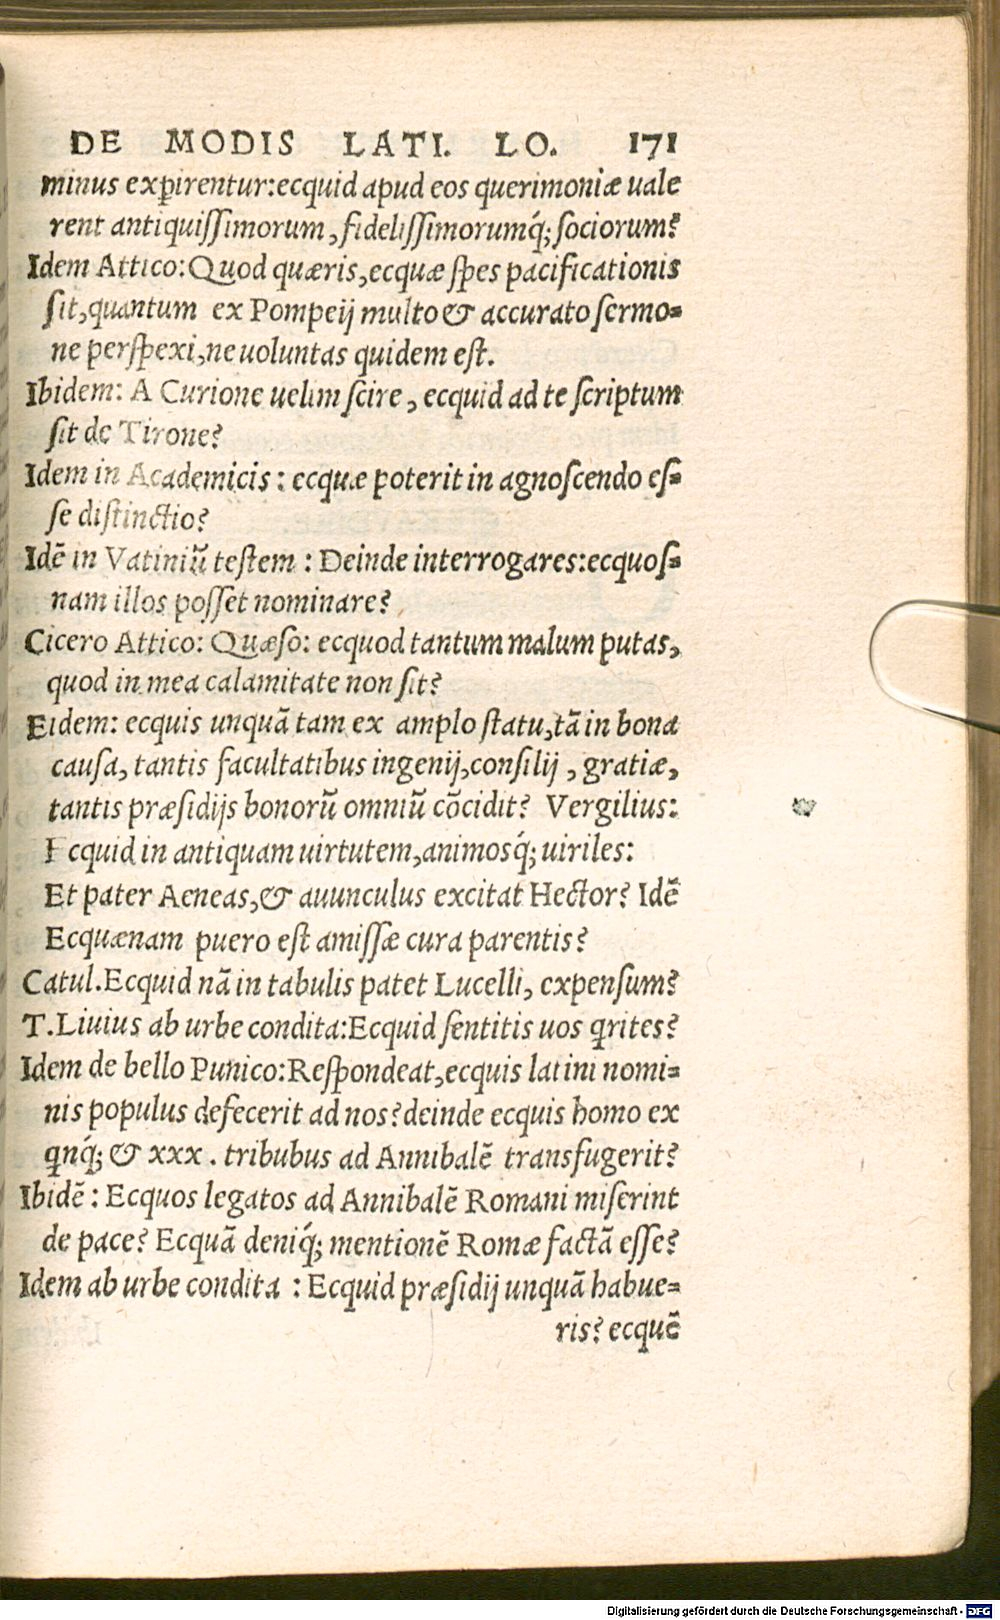 DE MODIS LATI. LO. 171
minus exꝑirentur:ecquid apud eos querimoniæ uale
rent antiquiſſimorum, fideliſſimorumq́; ſociorum?
Idem Attico: Quod quæris, ecquæ ſpes pacificationis
ſit, quantum ex Pompeij multo & accurato ſermo-
ne perſpexi, ne uoluntas quidem eſt.
Ibidem: A Curione uelim ſcire, ecquid ad te ſcriptum
ſit de Tirone?
Idem in Academicis: ecquæ poterit in agnoſcendo eſ-
ſe diſtinctio?
Idẽ in Vatiniũ teſtem: Deinde interrogares: ecquoſ-
nam illos poſſet nominare?
Cicero Attico: Quæſo: ecquod tantum malum putas,
quod in mea calamitate non ſit?
Eidem: ecquis unquã tam ex amplo ſtatu, tã in bona
cauſa, tantis facultatibus ingenij, conſilij, gratiæ,
tantis præſidijs bonorũ omniũ cõcidit? Vergilius:
Ecquid in antiquam uirtutem, animosq́; uiriles:
Et pater Aeneas, & auunculus excitat Hector? Idẽ
Ecquænam puero eſt amiſſæ cura parentis?
Catul. Ecquid nã in tabulis patet Lucelli, expenſum?
T. Liuius ab urbe condita: Ecquid ſentitis uos qrites?
Idem de bello Punico: Reſpondeat, ecquis latini nomi-
nis populus defecerit ad nos? deinde ecquis homo ex
qnq́; & xxx. tribubus ad Annibalẽ transfugerit?
Ibidẽ: Ecquos legatos ad Annibalẽ Romani miſerint
de pace? Ecquã deniq́; mentionẽ Romæ factã eſſe?
Idem ab urbe condita: Ecquid præſidij unquã habue-
ris? ecquẽ
Digitalisierung gefördert durch die Deutsche Forschungsgemeinschaft - DFG